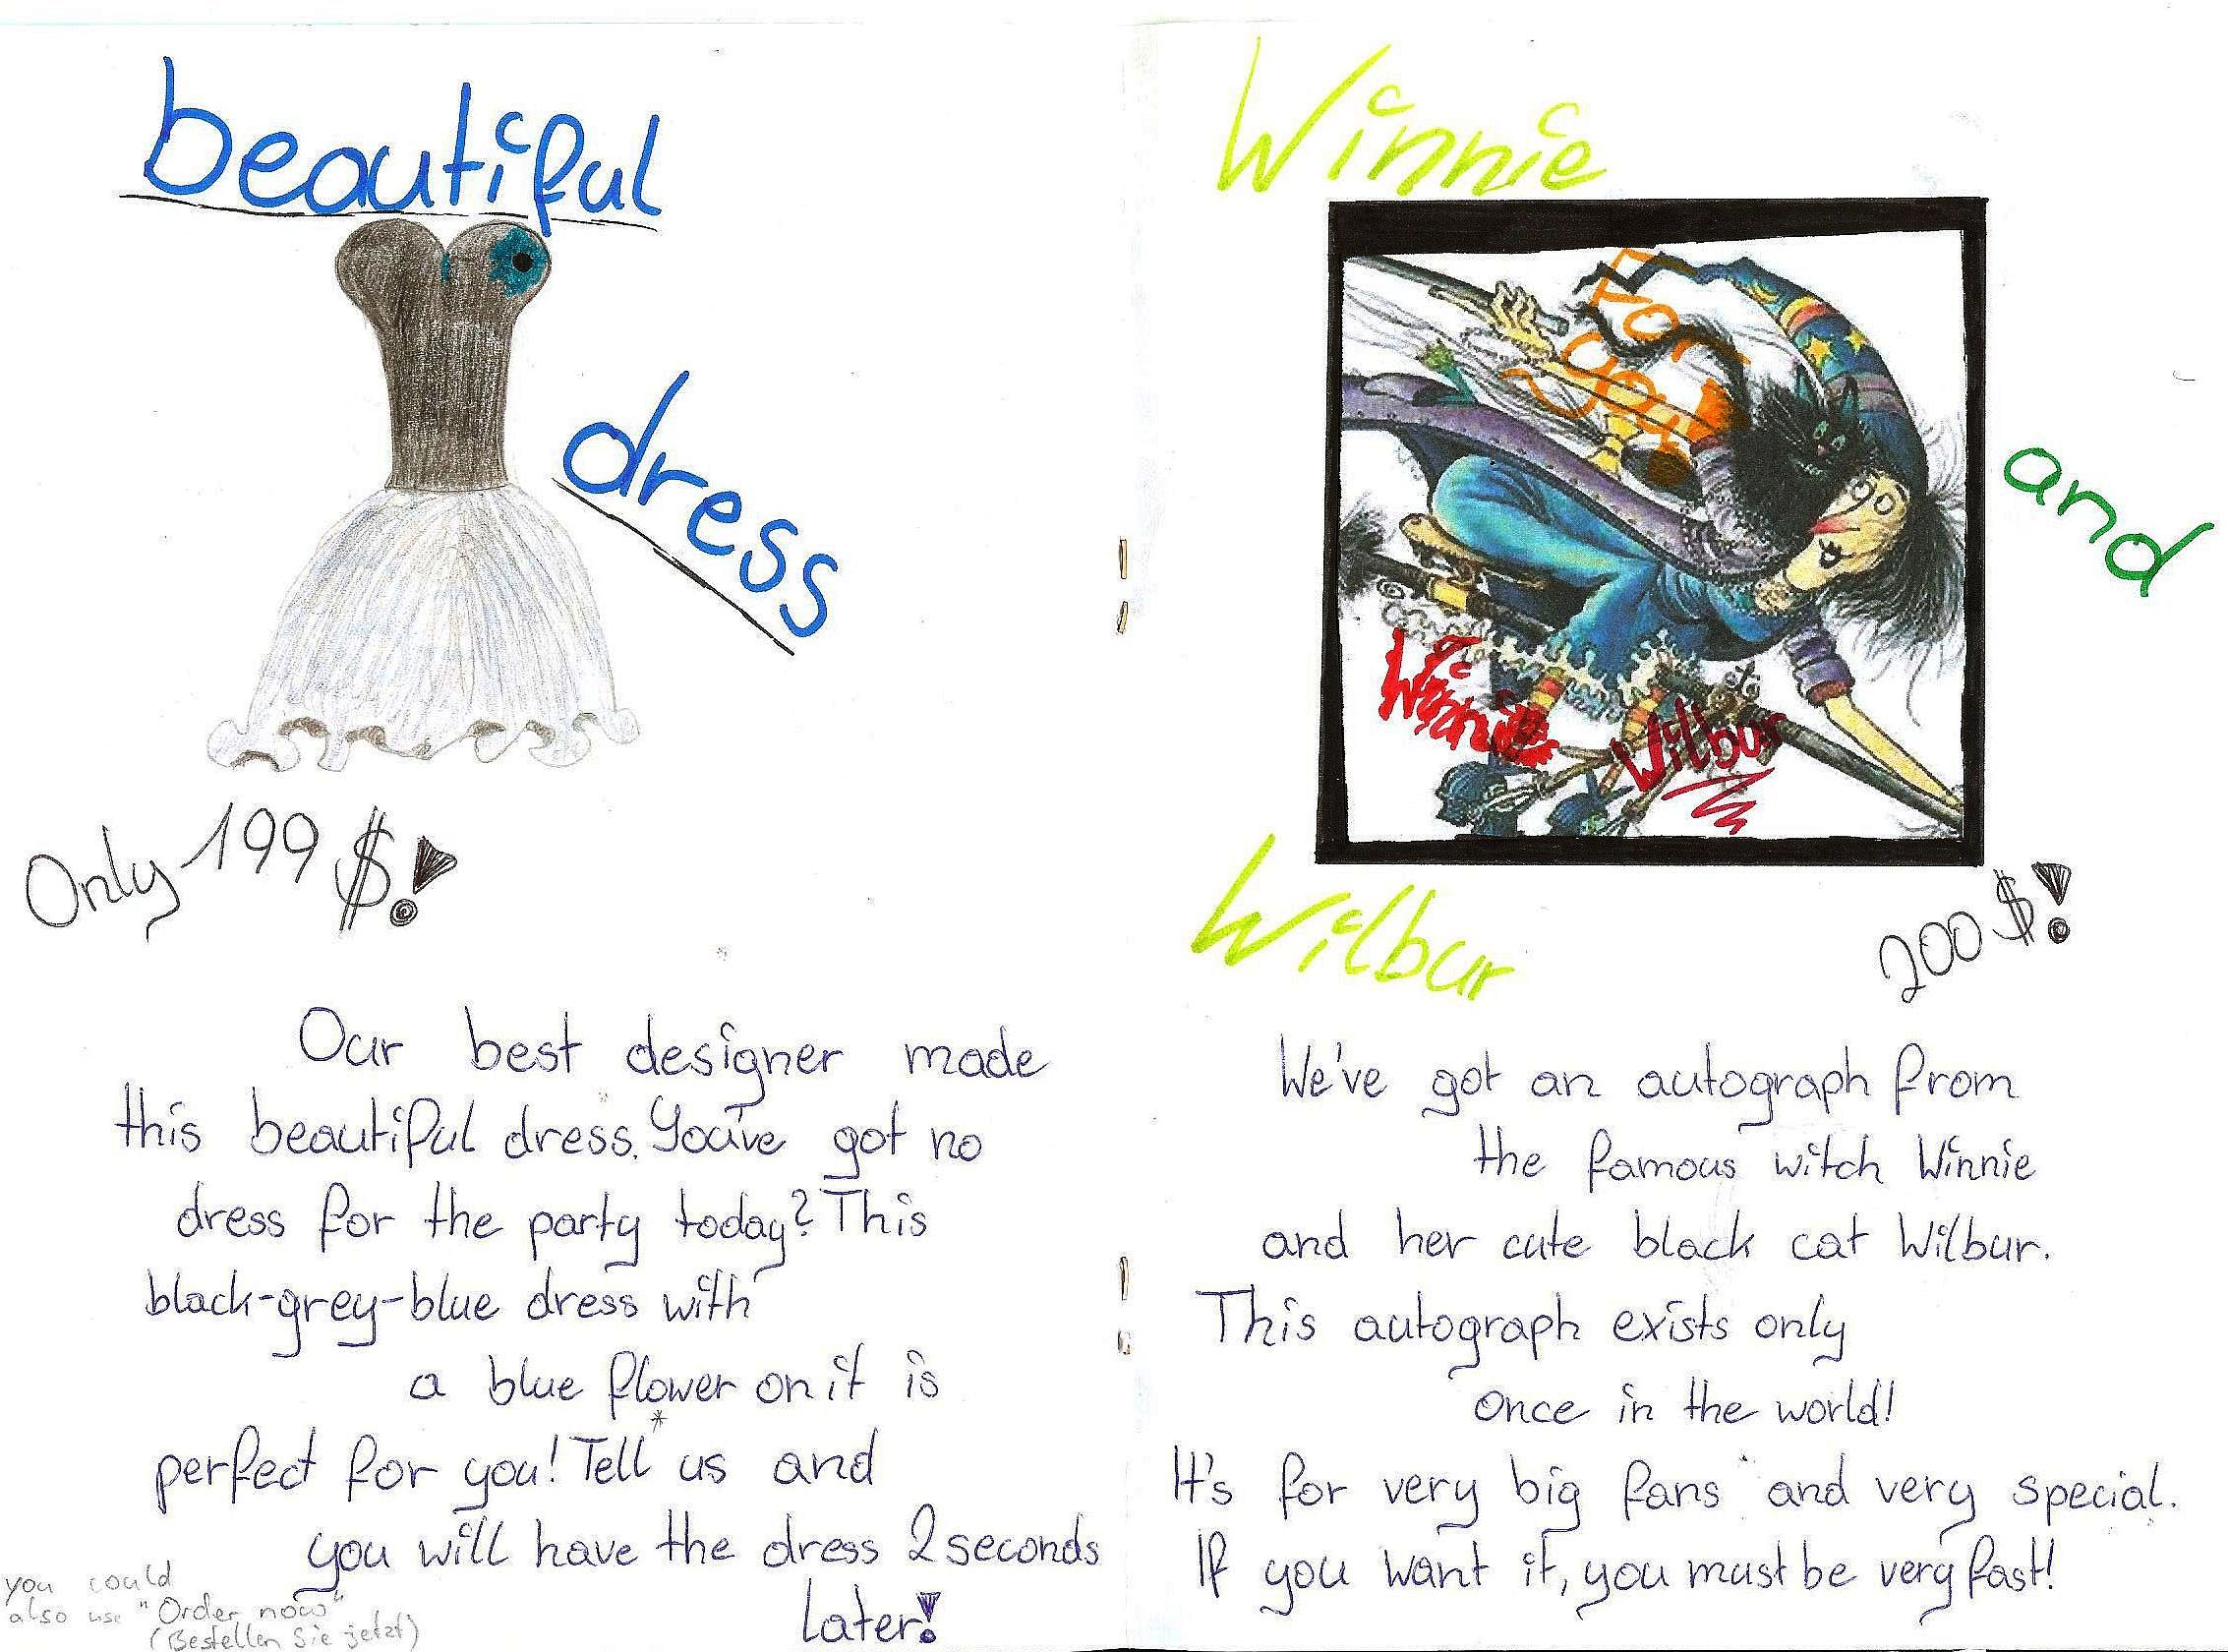 beautiful
dress
Only 199 $!
Our best designer made
this beautiful dress. You've got no
dress for the party today? This
black-grey-blue dress with
a blue flower on it is
perfect for you! Tell* us and
you will have the dress 2 seconds
later!
you could
also use "Order now"
(Bestellen Sie jetzt)
Winnie
and
Wilbur
For
you
Winnie
Wilbur
200 $!
We've got an autograph from
the famous witch Winnie
and her cute black cat Wilbur.
This autograph exists only
once in the world!
It's for very big fans and very special.
If you want it, you must be very fast!